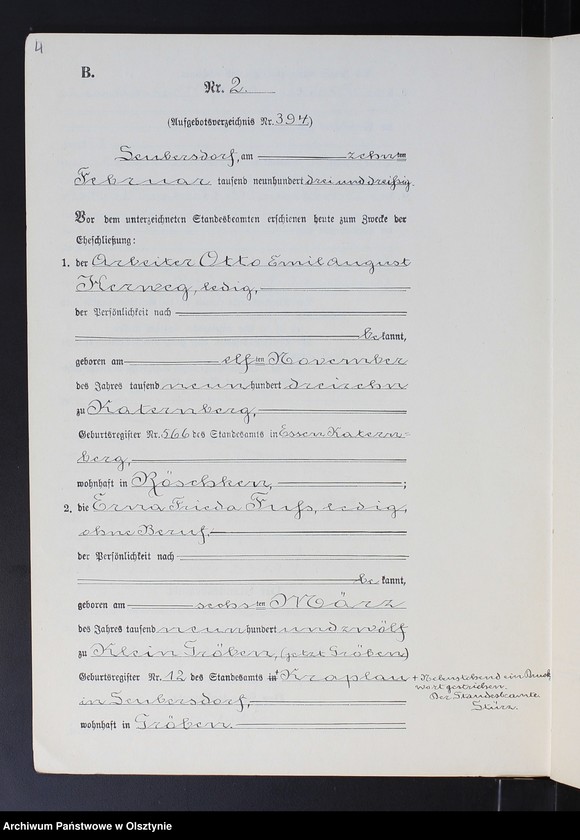 4
B.
Nr. 2.
(Aufgebotsverzeichnis Nr. 394)
Seubersdorf, am zehnten
Februar tausend neunhundert dreiunddreißig.
Vor dem unterzeichneten Standesbeamten erschienen heute zum Zwecke der
Eheschließung:
1. der Arbeiter Otto Emil August
Herweg, ledig,
der Persönlichkeit nach
bekannt,
geboren am elften November
des Jahres tausend neunhundert dreizehn
zu Katernberg,
Geburtsregister Nr. 566 des Standesamts in Essen Katern=
berg,
wohnhaft in Röschken, ;
2. die Erna Frieda Fuhs, ledig,
ohne Beruf.
der Persönlichkeit nach
bekannt,
geboren am sechsten März
des Jahres tausend neunhundert und zwölf
zu Klein Gröben, (jetzt Gröben)
Geburtsregister Nr. 12 des Standesamts in + Kraplau
in Seubersdorf,
wohnhaft in Gröben.
+ Nebenstehend ein Druck
wort gestrichen.
Der Standesbeamte
Stürz.
Archiwum Państwowe w Olsztynie